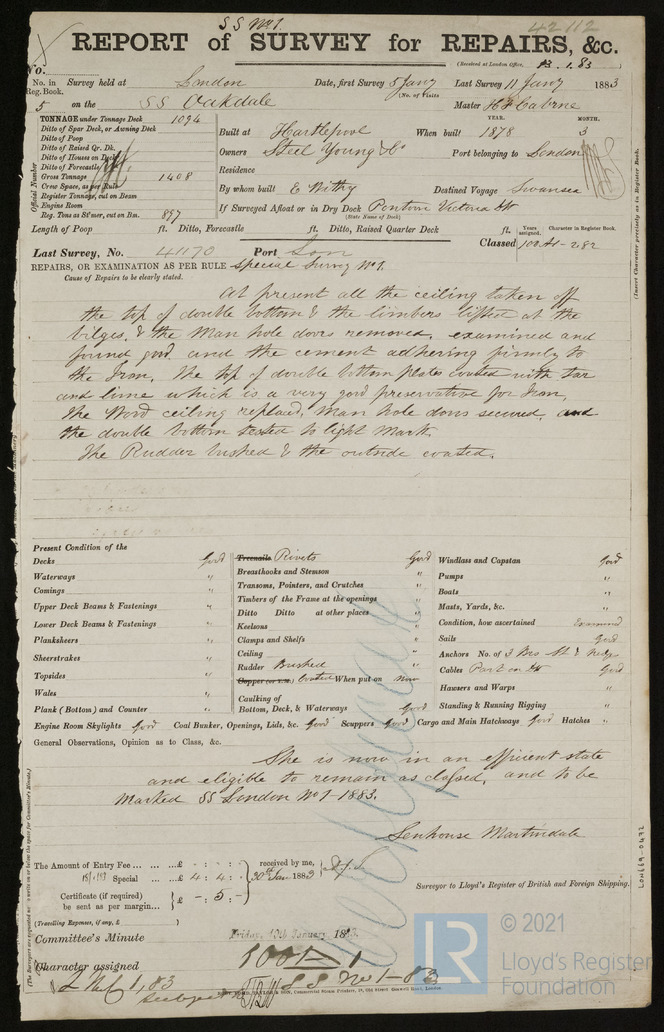 SS No 1.
42112
REPORT of SURVEY for REPAIRS, &c.
(Received at London Office, 13.1.83
No.
No. in Reg. Book. Survey held at London Date, first Survey 5 Jany Last Survey 11 Jany 1883
(No. of Visits
5 on the SS Oakdale Master
TONNAGE under Tonnage Deck 1094
Ditto of Spar Deck, or Awning Deck
Ditto of Poop
Ditto of Raised Qr. Dk.
Ditto of Houses on Deck
Ditto of Forecastle
Gross Tonnage 1408
Crew Space, as per Rule
Register Tonnage, cut on Beam
Engine Room
Reg. Tons as St'mer, cut on Bm. 897
Official Number
YEAR. MONTH.
Built at Hartlepool When built 1878 3
Owners Steel Young & Co Port belonging to London
Residence
By whom built E Withy Destined Voyage Swansea
If Surveyed Afloat or in Dry Dock Pontoon Victoria Dk
(State Name of Dock)
Length of Poop ft. Ditto, Forecastle ft. Ditto, Raised Quarter Deck ft.
Years assigned. Character in Register Book.
Last Survey, No. 41170 Port Lon Classed 100A1-2.82
(Insert Character precisely as in Register Book.
REPAIRS, OR EXAMINATION AS PER RULE Special Survey No 1.
Cause of Repairs to be clearly stated.
At present all the ceiling taken off
the top of double bottom & the limbers lifted at the
bilges, & the Man hole doors removed, examined and
found good, and the cement adhering firmly to
the Iron, The top of double bottom plates coated with tar
and lime which is a very good preservative for Iron,
The Wood ceiling replaced, Man hole doors secured, and
the double bottom tested to light Mark.
The Rudder bushed & the outside coated.
Present Condition of the
Decks Good
Waterways "
Comings "
Upper Deck Beams & Fastenings "
Lower Deck Beams & Fastenings "
Planksheers "
Sheerstrakes "
Topsides "
Wales "
Plank (Bottom) and Counter "
Treenails Rivets Good
Breasthooks and Stemson "
Transoms, Pointers, and Crutches "
Timbers of the Frame at the openings "
Ditto Ditto at other places "
Keelsons "
Clamps and Shelfs "
Ceiling "
Rudder Bushed "
Copper Coated When put on now
Caulking of
Bottom, Deck, & Waterways Good
Windlass and Capstan Good
Pumps "
Boats "
Masts, Yards, &c. "
Condition, how ascertained Examined
Sails Good
Anchors No. of 3
Cables Part on Dk Good
Hawsers and Warps "
Standing & Running Rigging "
Engine Room Skylights Good Coal Bunker, Openings, Lids, &c. Good Scuppers Good Cargo and Main Hatchways Good Hatches "
General Observations, Opinion as to Class, &c.
She is now in an efficient state
and eligible to remain as classed, and to be
Marked SS London No 1-1883.
Senhouse Martindale
Surveyor to Lloyd's Register of British and Foreign Shipping.
The Amount of Entry Fee ... £ - : - : - received by me,
Special ... £ 4 : 4 : - 30th Jan 1883
Certificate (if required) £ - : 5 : -
to be sent as per margin...
(Travelling Expenses, if any, £ )
Committee's Minute Friday, 19th January 1883.
Character assigned 100A1
LMC 1,83 SS No 1-83
LON669-0432
© 2021
LR
Lloyd's Register
Foundation